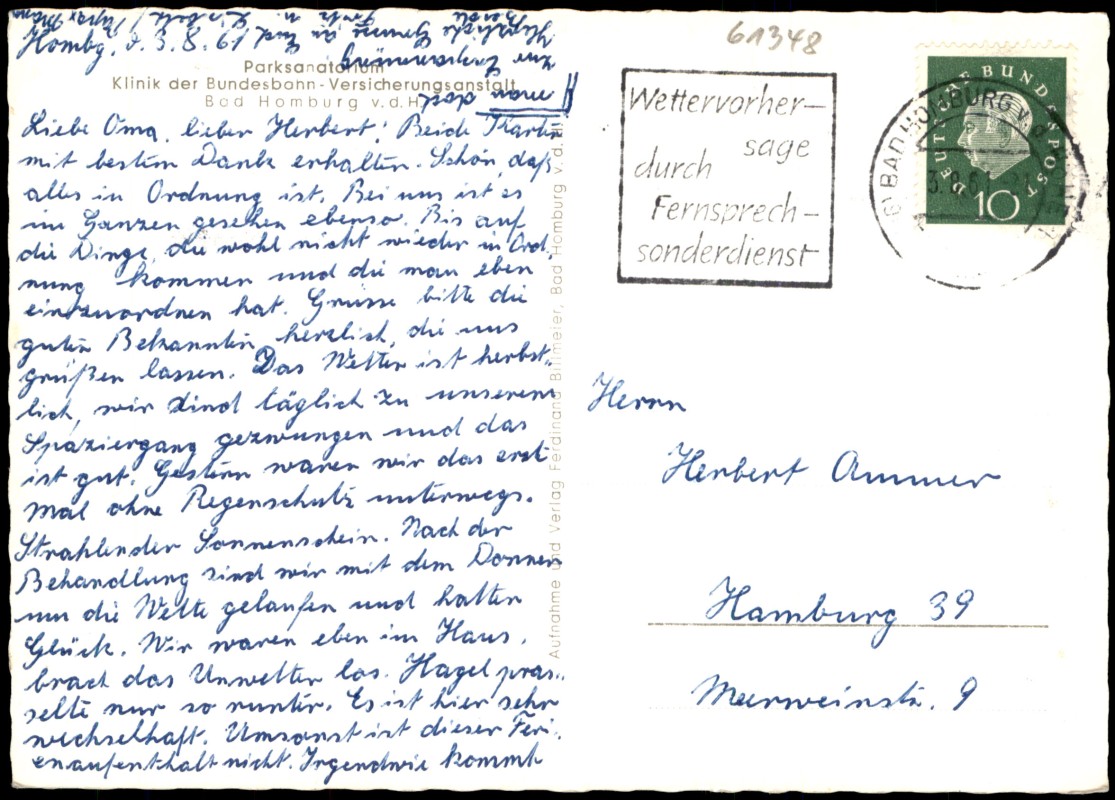 61348
Hombg. d. 3.8.61
Parksanatorium
Klinik der Bundesbahn-Versicherungsanstalt
Bad Homburg v.d.H.
Liebe Oma, lieber Herbert! Beide Karten
mit bestem Dank erhalten. Schön, daß
alles in Ordnung ist. Bei uns ist es
im Ganzen gesehen ebenso. Bis auf
die Dinge, die wohl nicht wieder in Ord-
nung kommen und die man eben
einzuordnen hat. Grüsse bitte die
guten Bekannten herzlich, die uns
grüßen lassen. Das Wetter ist herbst-
lich, wir sind täglich zu unserem
Spaziergang gezwungen und das
ist gut. Gestern waren wir das erste
mal ohne Regenschutz unterwegs.
Strahlender Sonnenschein. Nach der
Behandlung sind wir mit dem Donner
um die Wette gelaufen und hatten
Glück. Wir waren eben im Haus,
brach das Unwetter los. Hagel pras-
selte nur so runter. Es ist hier sehr
wechselhaft. Umsonst ist dieser Feri-
enaufenthalt nicht. Irgendwie kommt
man doch
zur
Herzliche
Aufnahme und Verlag Ferdinand Billmeier, Bad Homburg v.d.H.
Wettervorher-
sage
durch
Fernsprech-
sonderdienst
DEUTSCHE BUNDESPOST
10
BAD HOMBURG v.d.
3.8.61
Herrn
Herbert Ammer
Hamburg 39
Meerweinstr. 9